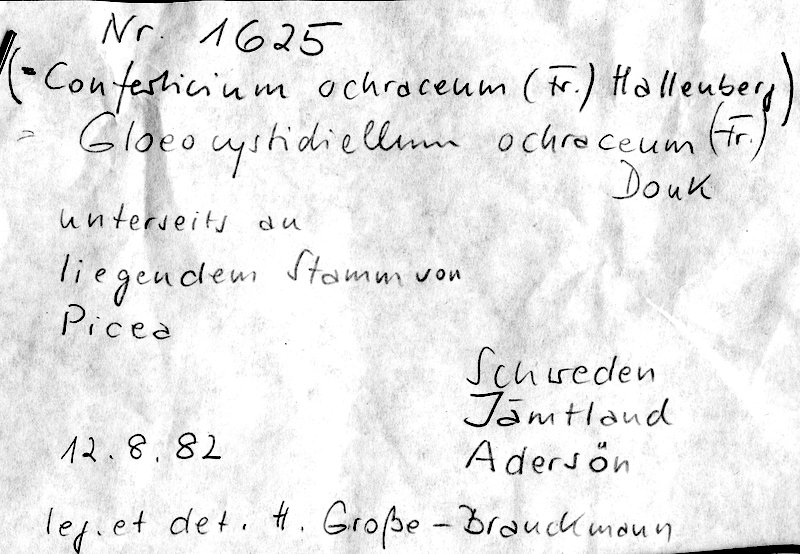 Nr. 1625
(= Conferticium ochraceum (Fr.) Hallenberg)
= Gloeocystidiellum ochraceum (Fr.)
Donk
unterseits an
liegendem Stamm von
Picea
Schweden
Jämtland
Adersön
12.8.82
leg. et det. H. Große-Brauckmann